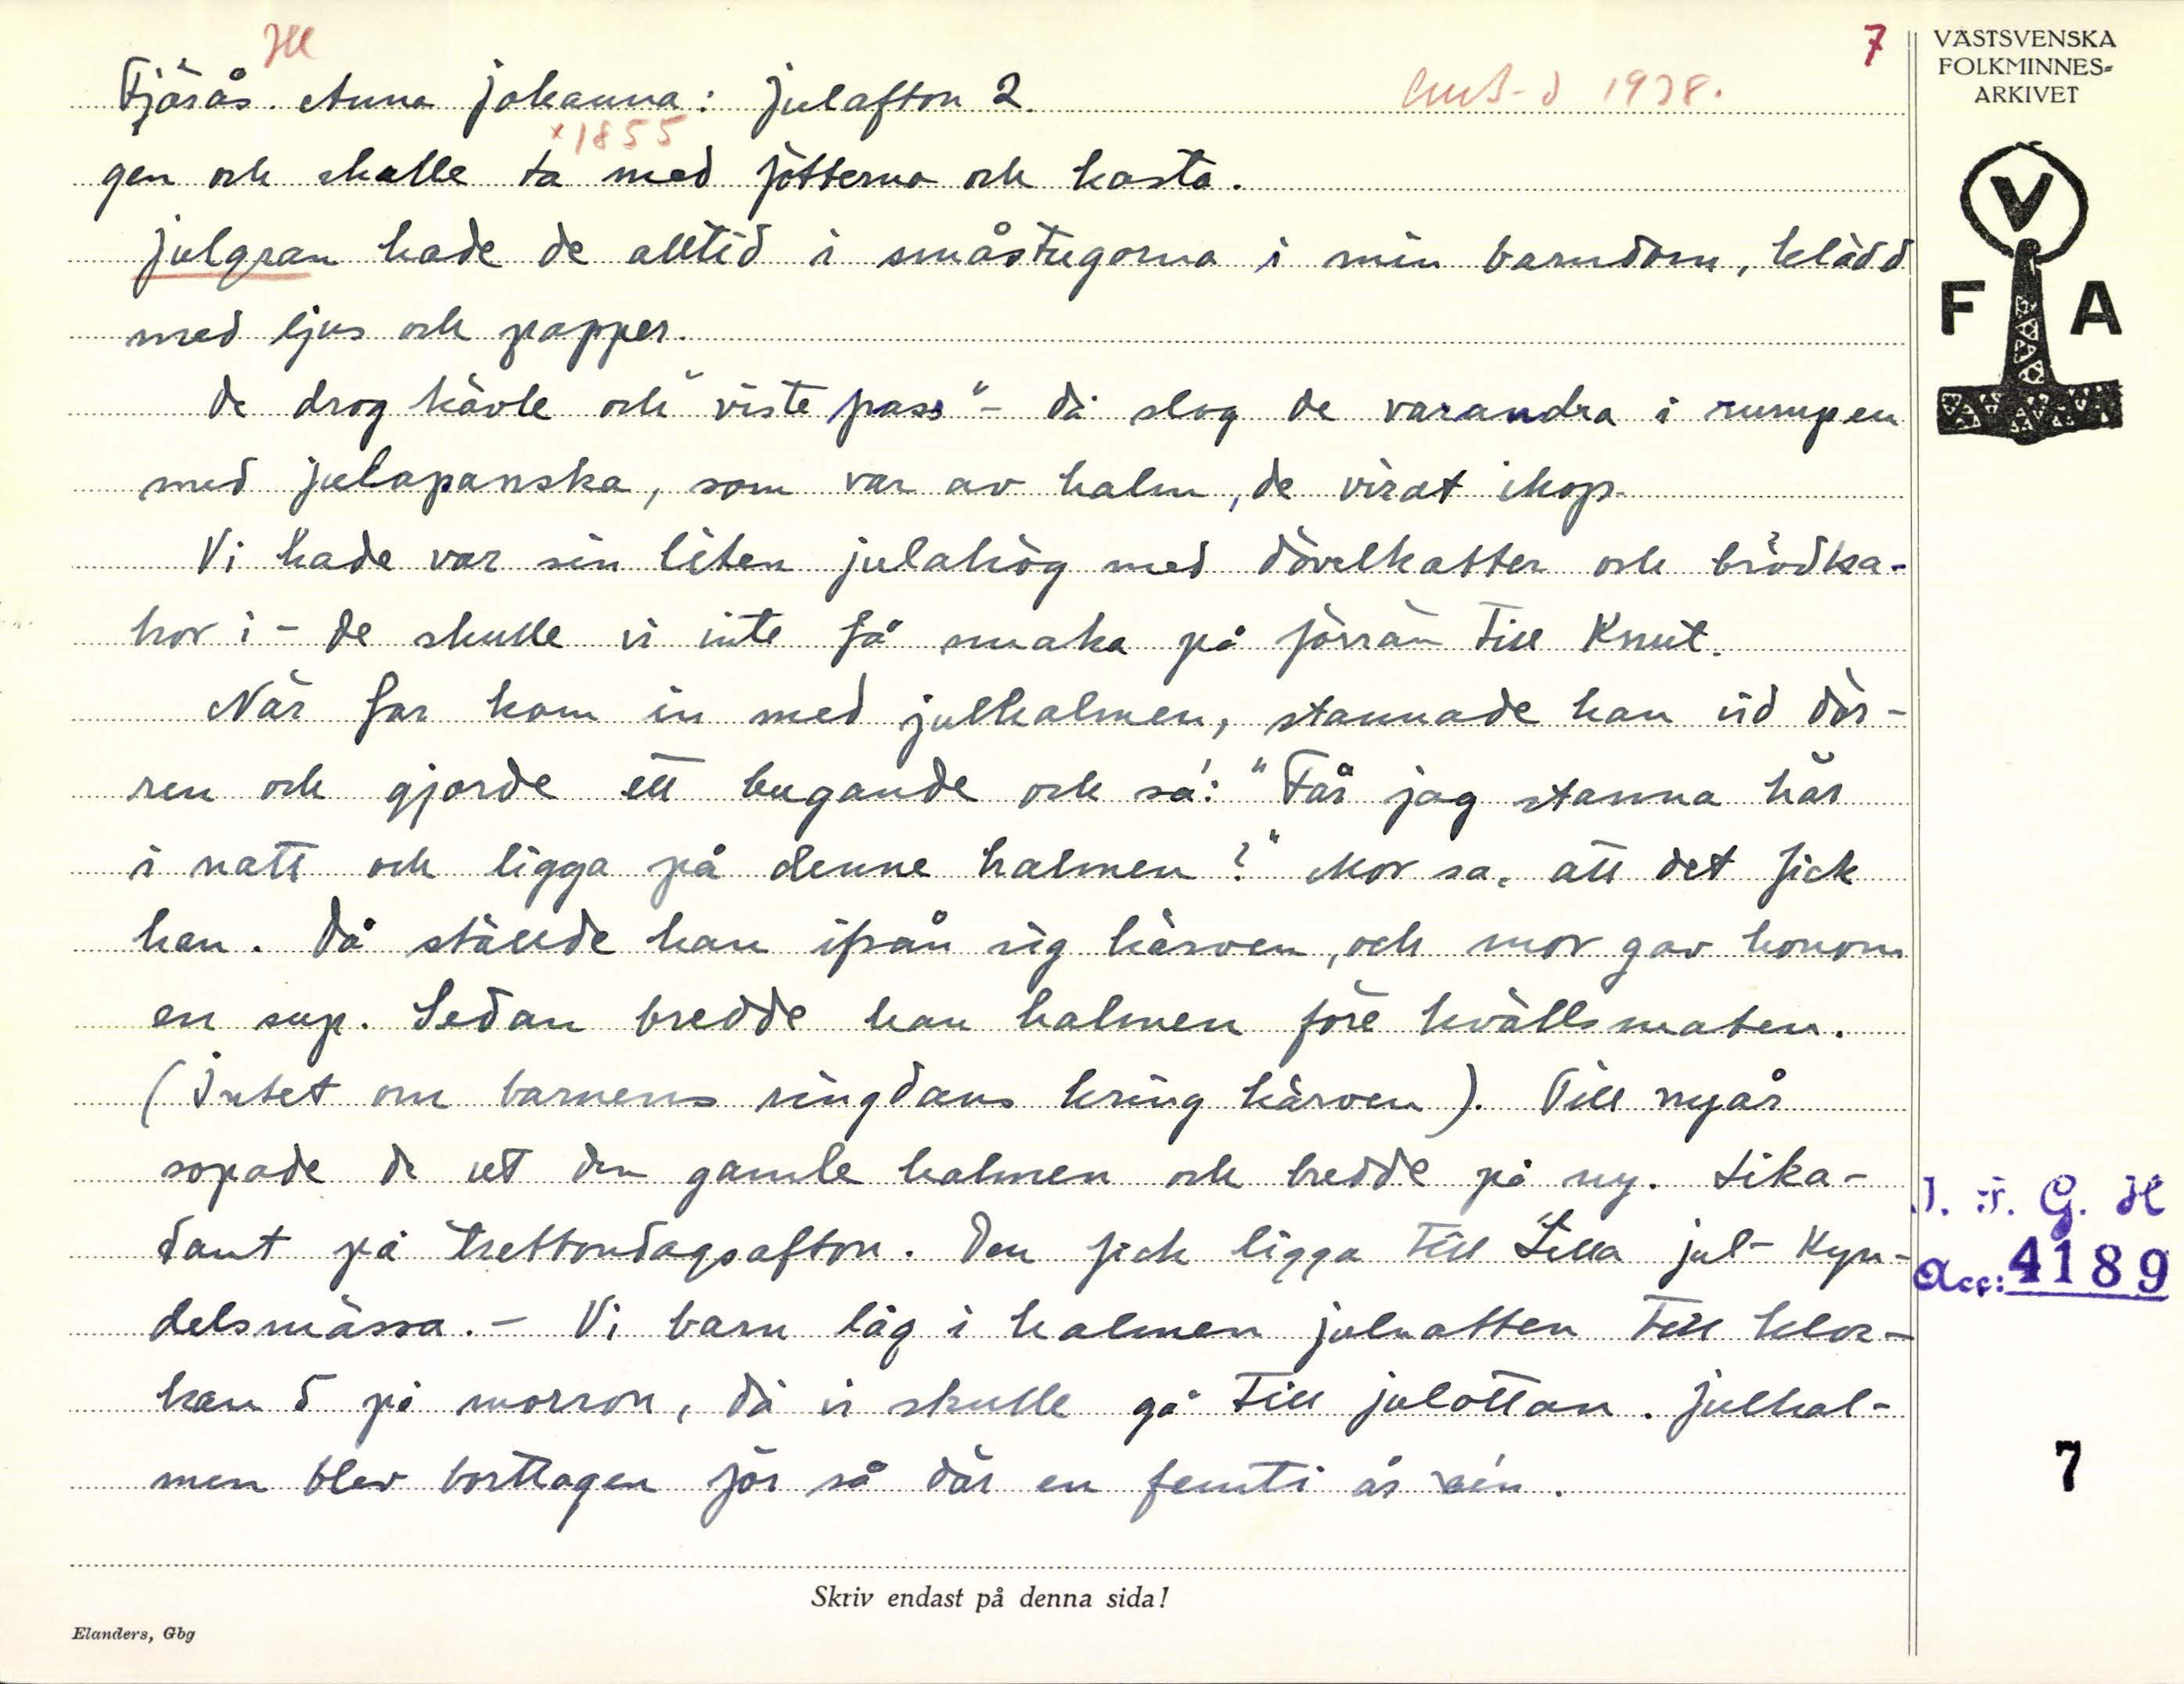 Hl
7
VÄSTSVENSKA
FOLKMINNES-
ARKIVET
Fjärås. Anna Johanna: Julafton 2.
1938.
*1855
gen och skulle ta med fötterna och kasta.
Julgran hade de alltid i småstugorna i min barndom, klädd
med ljus och papper.
De drog kävle och "viste pass" - då slog de varandra i rumpen
med julapanska, som var av halm, de virat ihop.
Vi hade var sin liten julahög med dövelkatter och brödka-
kor i - de skulle vi inte få smaka på förrän till Knut.
När far kom in med julhalmen, stannade han vid dör-
ren och gjorde ett bugande och sa: "Får jag stanna här
i natt och ligga på denne halmen?" Mor sa, att det fick
han. Då ställde han ifrån sig kärven, och mor gav honom
en sup. Sedan bredde han halmen före kvällsmaten.
(Intet om barnens ringdans kring kärven). Till nyår
sopade de ut den gamle halmen och bredde på ny. Lika-
dant på trettondagsafton. Den fick ligga till Lilla jul - Kyn-
delsmässa. - Vi barn låg i halmen julnatten till kloc-
kan 5 på morron, då vi skulle gå till julottan. Julhal-
men blev borttagen för så där en femti år sén.
V
F A
I. F. G. H
Acc: 4189
7
Skriv endast på denna sida!
Elanders, Gbg